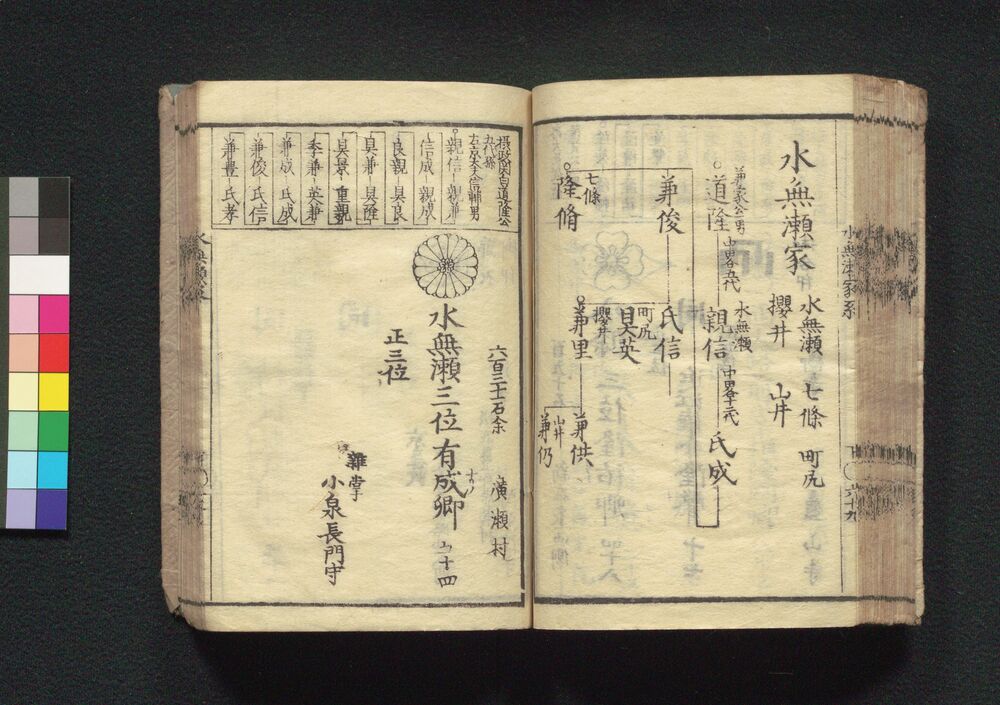 水無瀬家
水無瀬 七條 町尻
櫻井 山井
兼家公男
道隆
中畧五代
水無瀬
親信
中畧十二代
氏成
兼俊
氏信
町尻
具英
櫻井
兼里
兼供
山井
兼仍
七條
隆脩
水無瀬家系
六十九
摂政関白道隆公
九代孫
左京大夫信輔男
親信 親兼
信成 親成
良親 具良
具兼 具隆
具景 重親
季兼 英兼
兼成 氏成
兼俊 氏信
兼豊 氏孝
六百三十一石余 廣瀬村
水無瀬三位有成卿 四十四
正三位
雜掌
小泉長門守